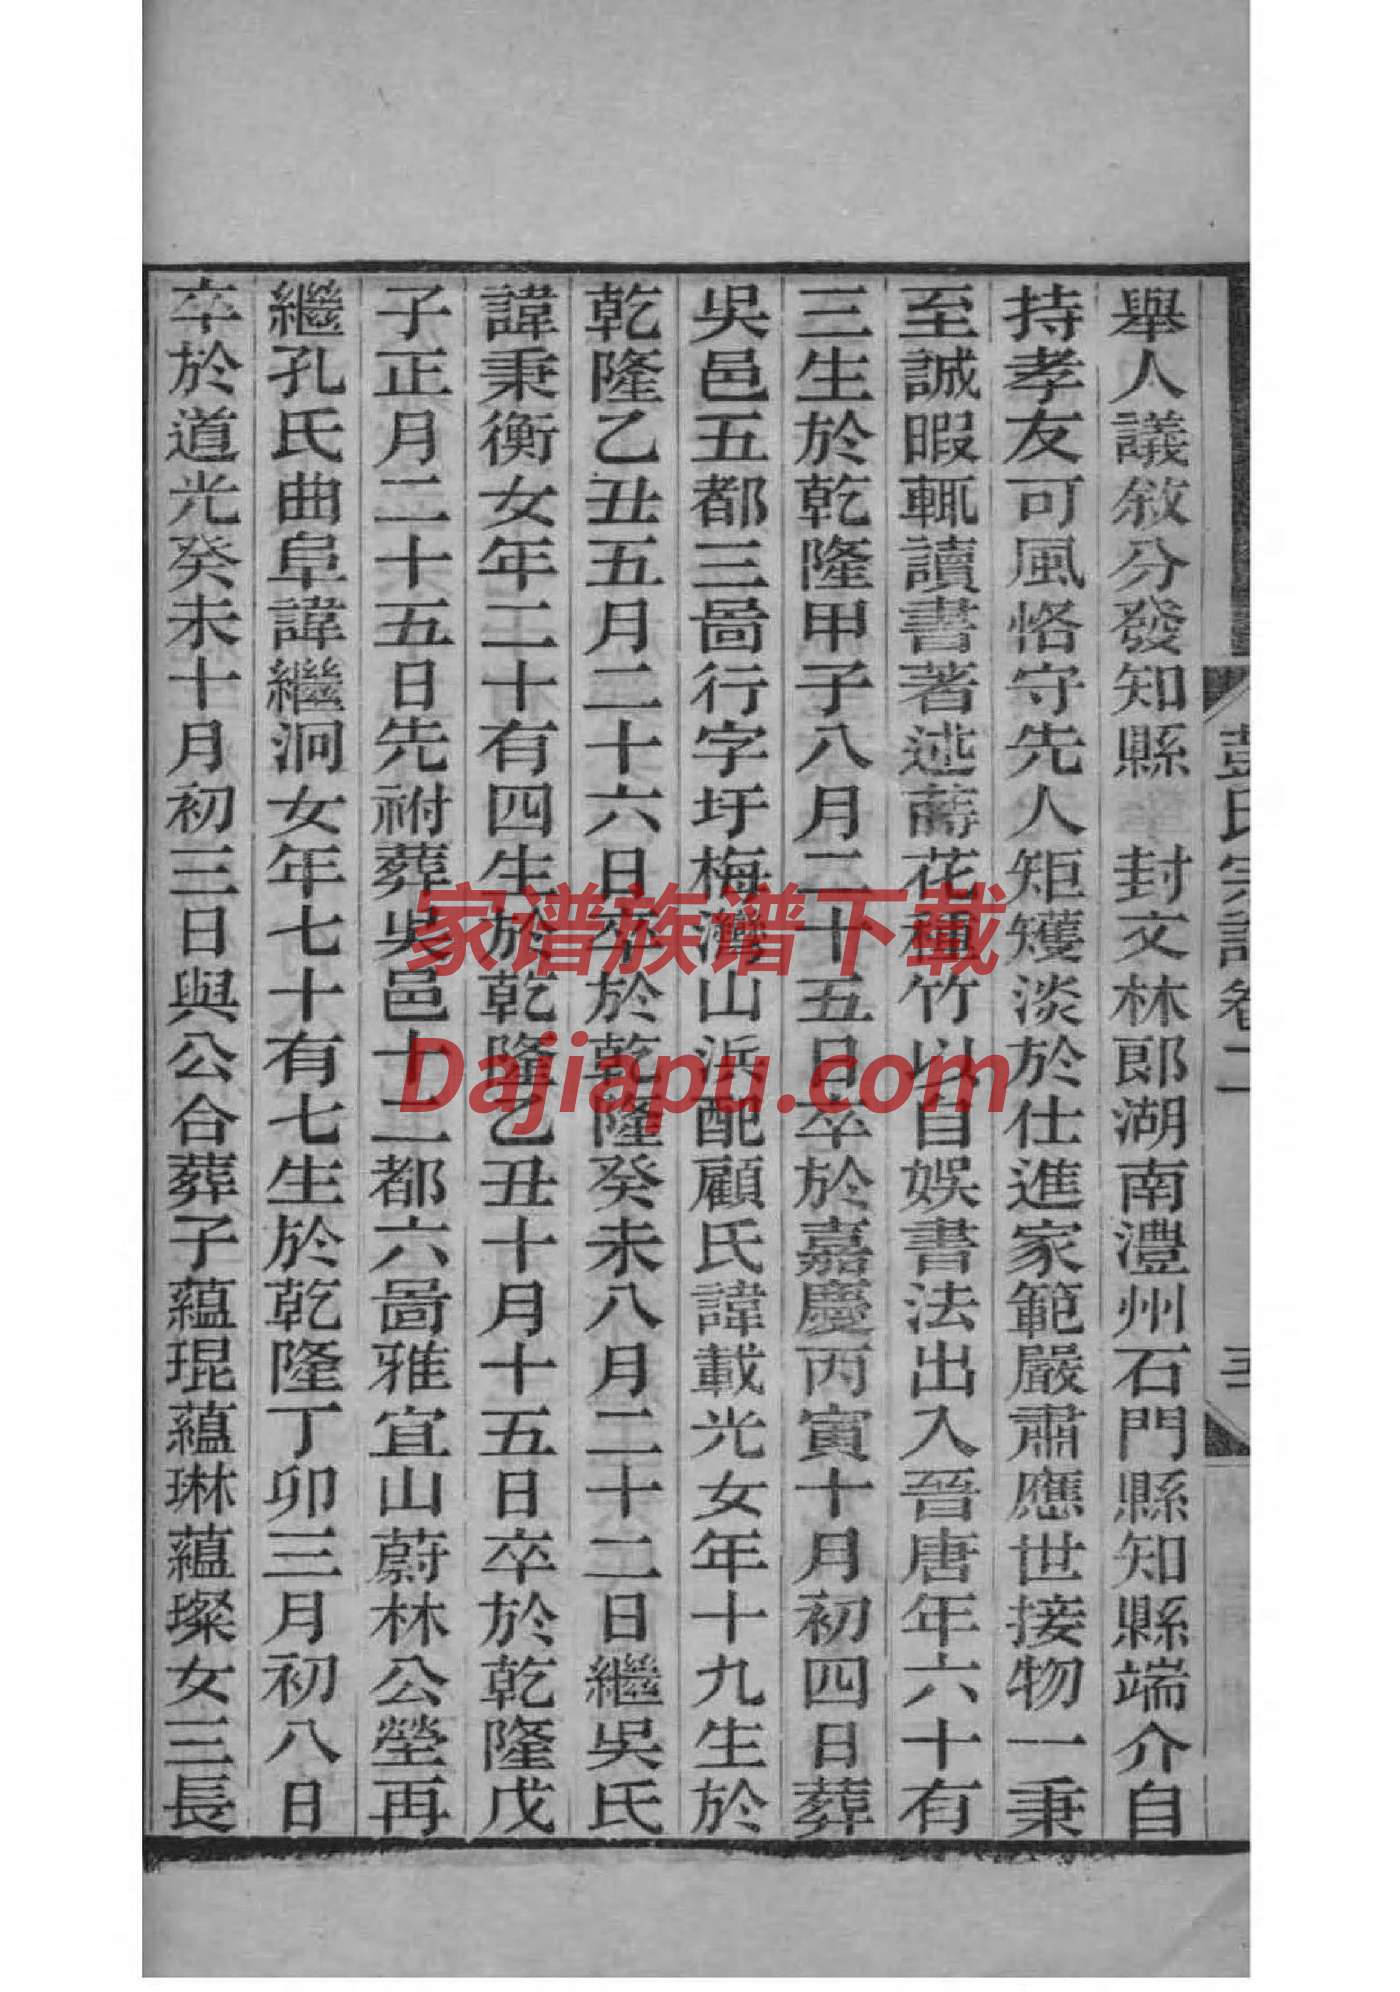 彭氏宗譜卷二
舉人議敘分發知縣 封文林郎湖南澧州石門縣知縣端介自
持孝友可風恪守先人矩矱淡於仕進家範嚴肅應世接物一秉
至誠暇輒讀書著述蒔花種竹以自娛書法出入晉唐年六十有
三生於乾隆甲子八月二十五日卒於嘉慶丙寅十月初四日葬
吳邑五都三啚行字圩梅灣山浜配顧氏諱載光女年十九生於
乾隆乙丑五月二十六日卒於乾隆癸未八月二十二日繼吳氏
諱秉衡女年二十有四生於乾隆乙丑十月十五日卒於乾隆戊
子正月二十五日先祔葬吳邑十二都六啚雅宜山蔚林公塋再
繼孔氏曲阜諱繼泂女年七十有七生於乾隆丁卯三月初八日
卒於道光癸未十月初三日與公合葬子蘊琨蘊琳蘊璨女三長
家谱族谱下载
Dajiapu.com